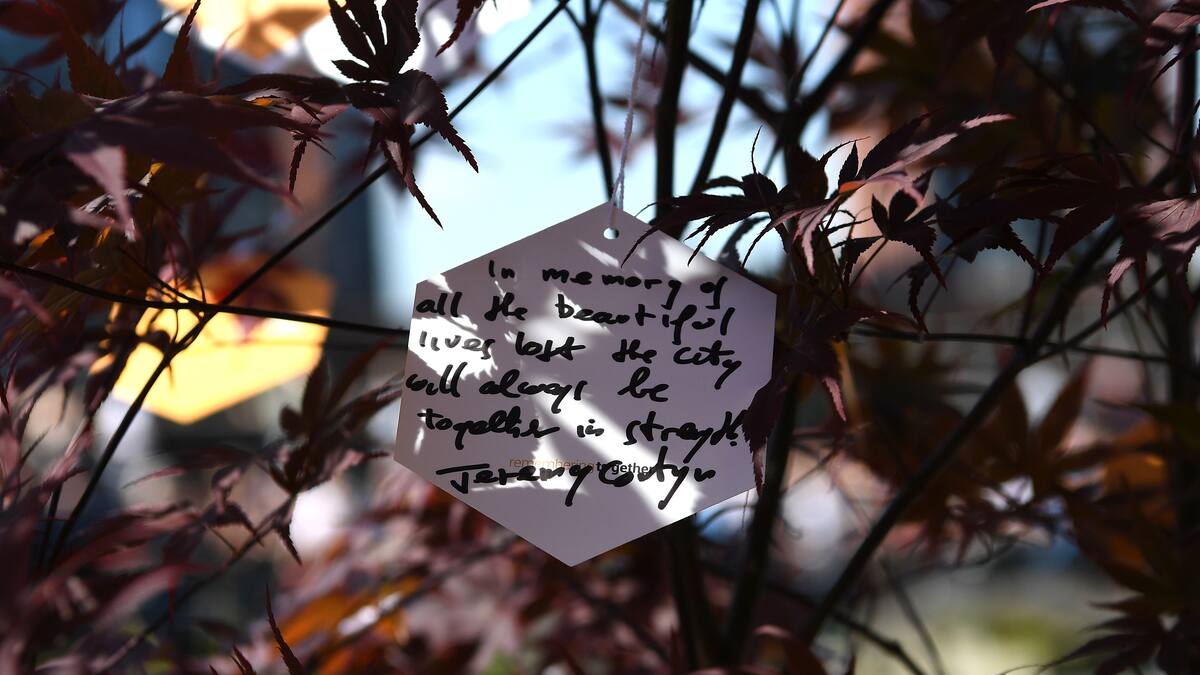 In memory of
all the beautiful
lives lost the city
will always be
together in strength
remembering together
Jeremy Corbyn